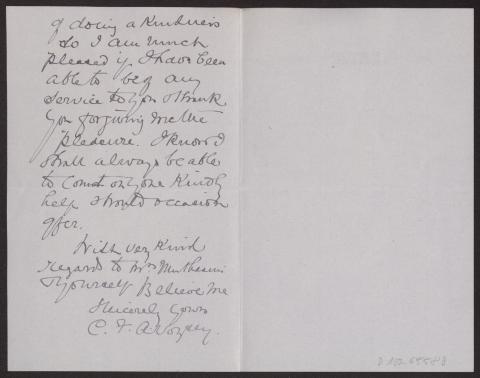 of doing a kindness
so I am much
pleased if I have been
able to be of any
service to you & thank
you for giving me the
pleasure. I know I
shall always be able
to count on your kindly
help should occasion
offer.
With very kind
regards to Mrs
& yourself Believe me
Sincerely yours
C. F. A. Voysey.